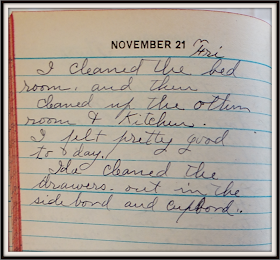 NOVEMBER 21 Fri
I cleaned the bed
room. and then
cleaned up the other
room & Kitchen.
I felt pretty good
to day.
Ida cleaned the
drawers. out in the
side bord and cupbord..